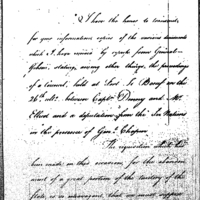 I have the honor to transmit,
for your information copies of the various documents
which I have received by express from General
Gibson, stating, among other things, the proceedings
of a Council, held at Fort Le Boeuf on the
26th ult. between Capt. Denny and Mr.
Ellicot and a deputation from the Six Nations
in the presence of Gen. Chapin
The requisition
have made on this occasion for the abandon
ment of a great portion of the territory of the
State is an